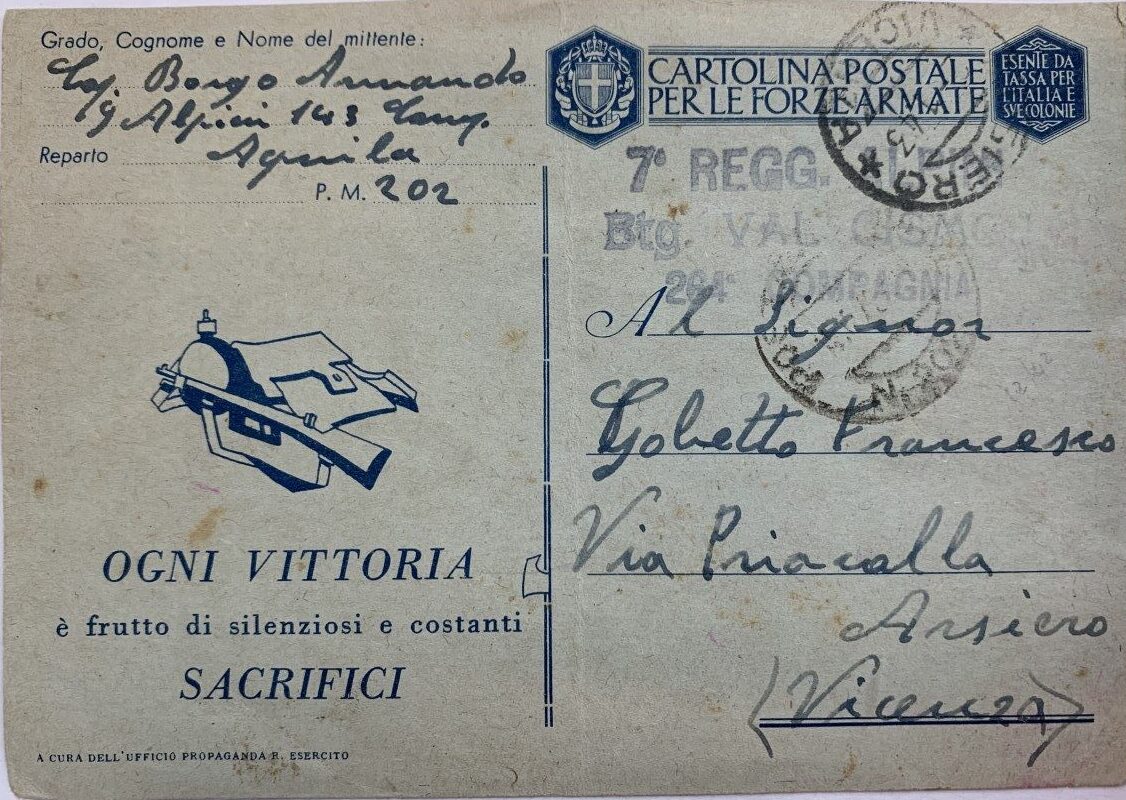 Grado, Cognome e Nome del mittente:
Borgo Armando
9 Alpini 143 Comp.
Reparto Aquila
P. M. 202
CARTOLINA POSTALE
PER LE FORZE ARMATE
ESENTE DA
TASSA PER
L'ITALIA E
SVE COLONIE
ARSIERO * VICENZA *
7° REGG. ALP
Btg. VAL CISMO
264° COMPAGNIA
POS N
Al Signor
Gobetto Francesco
Via Priacalla
Arsiero
(Vicenza)
OGNI VITTORIA
è frutto di silenziosi e costanti
SACRIFICI
A CURA DELL'UFFICIO PROPAGANDA R. ESERCITO